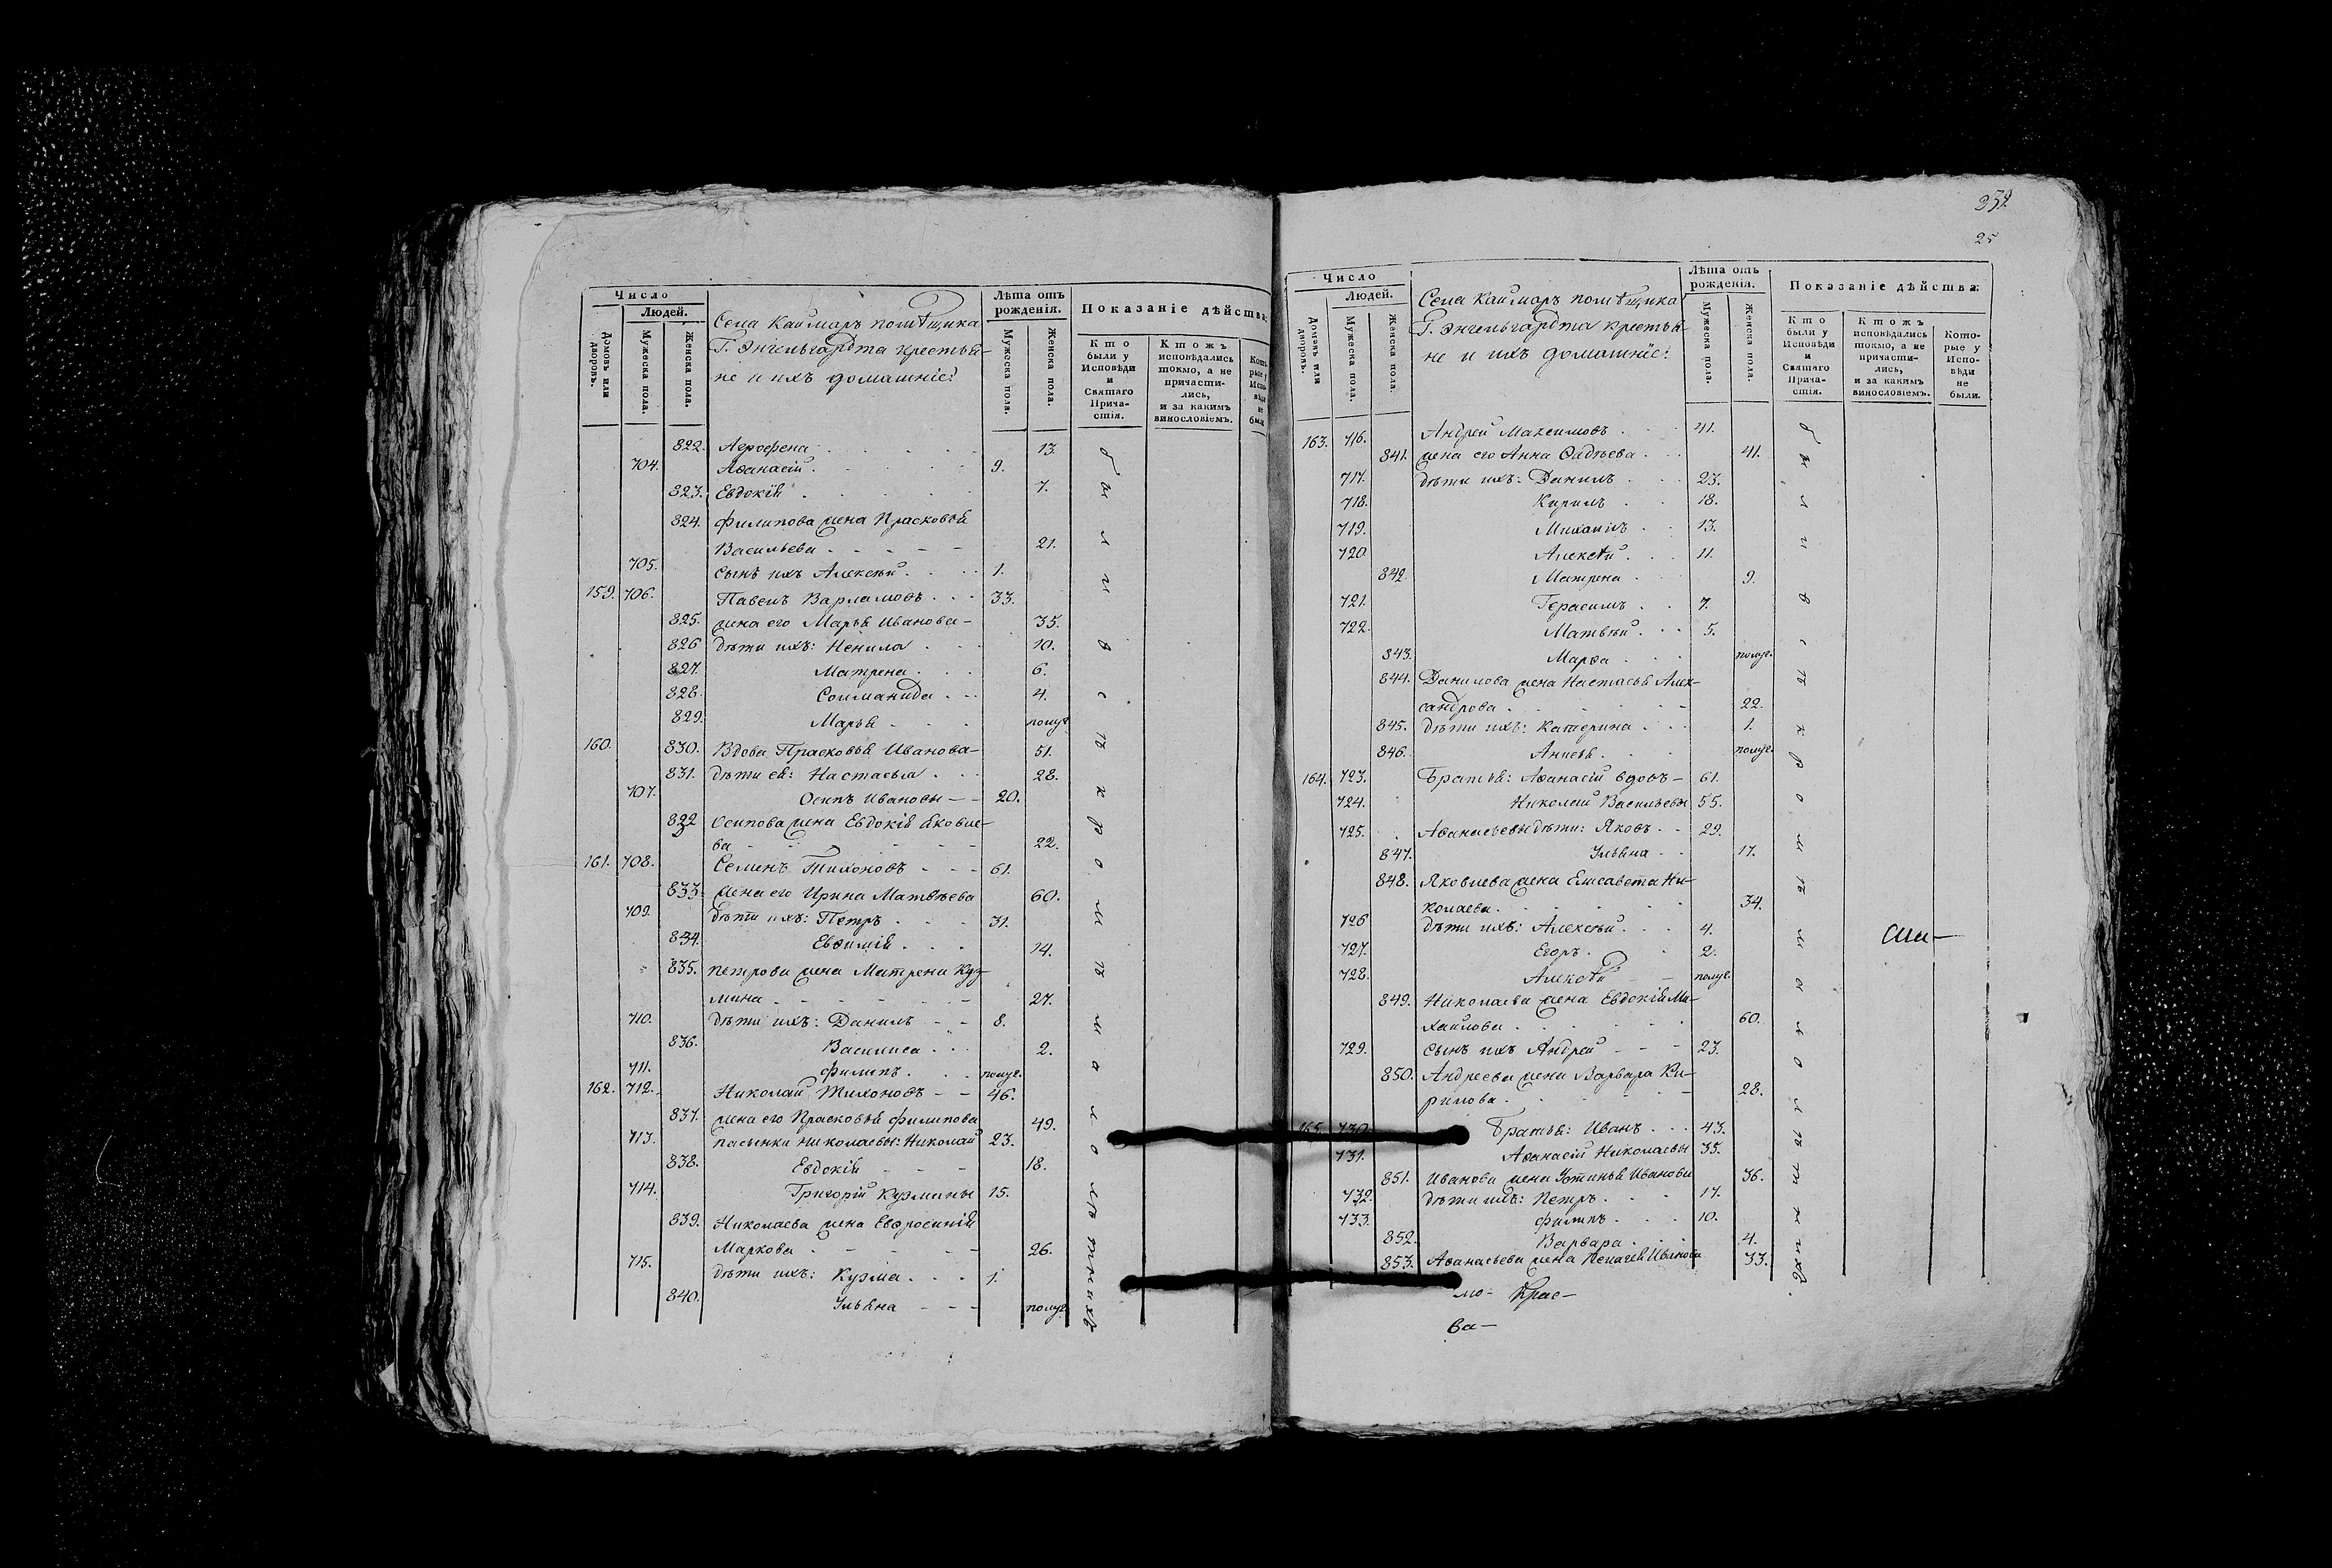 Число
Людей.
Домовъ или дворовъ.
Мужеска пола.
Женска пола.
Села Каймаръ помѣщика
Г. Энгельгардта крестья-
не и ихъ домашнїе:
Лѣта отъ рожденія.
Мужеска пола.
Женска пола.
Показаніе дѣйства:
Кто были у Исповѣди и Святаго Прича-стія.
Ктожъ исповѣдались токмо, а не причасти-лись, и за какимъ винословіемъ.
822. Агрофена 13.
704. Аѳанасїй 9.
823. Евдокїя 7.
824. Филипова жена Прасковья
Васильева 21.
705. сынъ ихъ Алексѣй 1.
159. 706. Павелъ Варламовъ 33.
825. жена его Марья Иванова 35.
826 дѣти ихъ: Ненила 10.
827. Матрена 6.
828. Соломанида 4.
829. Марья полуг.
160. 830. Вдова Прасковья Иванова 51.
831. дѣти ея: Настасья 28.
707. Осипъ Ивановы 20.
832 Осипова жена Евдокїя Яковле-
ва 22.
161. 708. Семенъ Тихоновъ 61.
833. жена его Ирина Матвѣева 60.
709. дѣти ихъ: Петръ 31.
834. Евѳимїя 14.
835. Петрова жена Матрена Куз-
мина 27.
710. дѣти ихъ: Данилъ 8.
836. Василиса 2.
711. Филипъ полуг.
162. 712. Николай Тихоновъ 46.
837. жена его Прасковья Филипова 49.
713. пасынки Николаевы: Николай 23.
838. Евдокїя 18.
714. Григорїй Кузмины 15.
839. Николаева жена Евфросинїя
Маркова 26.
715. дѣти ихъ: Кузма 1.
840. Ульяна полуг.
25
Число
Людей.
Домовъ или дворовъ.
Мужеска пола.
Женска пола.
Села Каймаръ помѣщика
Г. Энгельгардта крестья-
не и ихъ домашнїе:
Лѣта отъ рожденія.
Мужеска пола.
Женска пола.
Показаніе дѣйства:
Кто были у Исповѣди и Святаго Прича-стія.
Ктожъ исповѣдались токмо, а не причасти-лись, и за какимъ винословіемъ.
Кото-рые у Испо-вѣди не были.
163. 716. Андрей Максимовъ 41.
841. жена его Анна Фадѣева 41.
717. дѣти ихъ: Данилъ 23.
718. Кирилъ 18.
719. Михаилъ 13.
720. Алексѣй 11.
842. Матрена 9.
721. Герасимъ 7.
722. Матвѣй 5.
843. Марѳа полуг.
844. Данилова жена Настасья Алек-
сандрова 22.
845. дѣти ихъ: Катерина 1.
846. Анисья полуг.
164. 723. Братья: Аѳанасїй вдовъ 61.
724. Николай Васильевы 55.
725. Аѳанасьевы дѣти: Яковъ 29.
847. Ульяна 17.
848. Яковлева жена Елисавета Ни-
колаева 34.
726 дѣти ихъ: Алексѣй 4.
727. Егоръ 2.
728. Алексѣй полуг.
849. Николаева жена Евдокїя Ми-
хайлова 60.
729. сынъ ихъ Андрей 23.
850. Андреева жена Варвара Ки-
рилова 28.
165. 730. Братья: Иванъ 43.
731. Аѳанасїй Николаевы 35.
851. Иванова жена Устинья Иванова 36.
732. дѣти ихъ: Петръ 17.
733. Филипъ 10.
852. Варвара 4.
853. Аѳанасьева жена Пелагея Иванова 33.